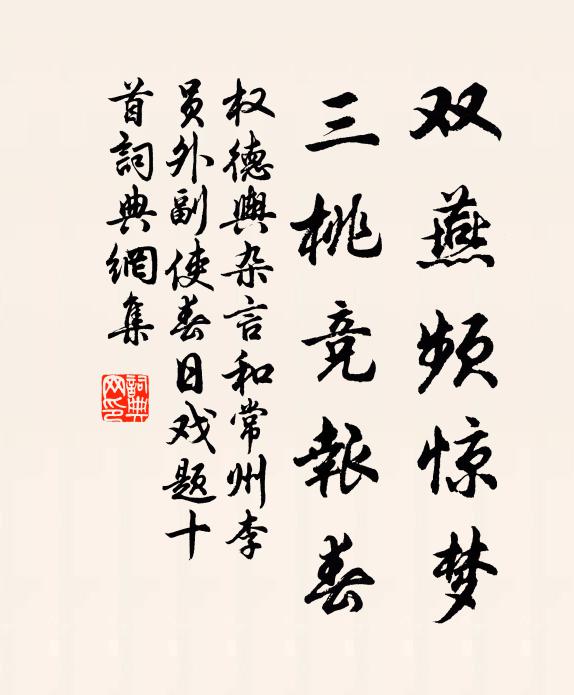 双燕频惊梦
三桃竞報春
权德輿杂言和常州李
员外副使春日戏题十
首詞典網集
詞典
网印